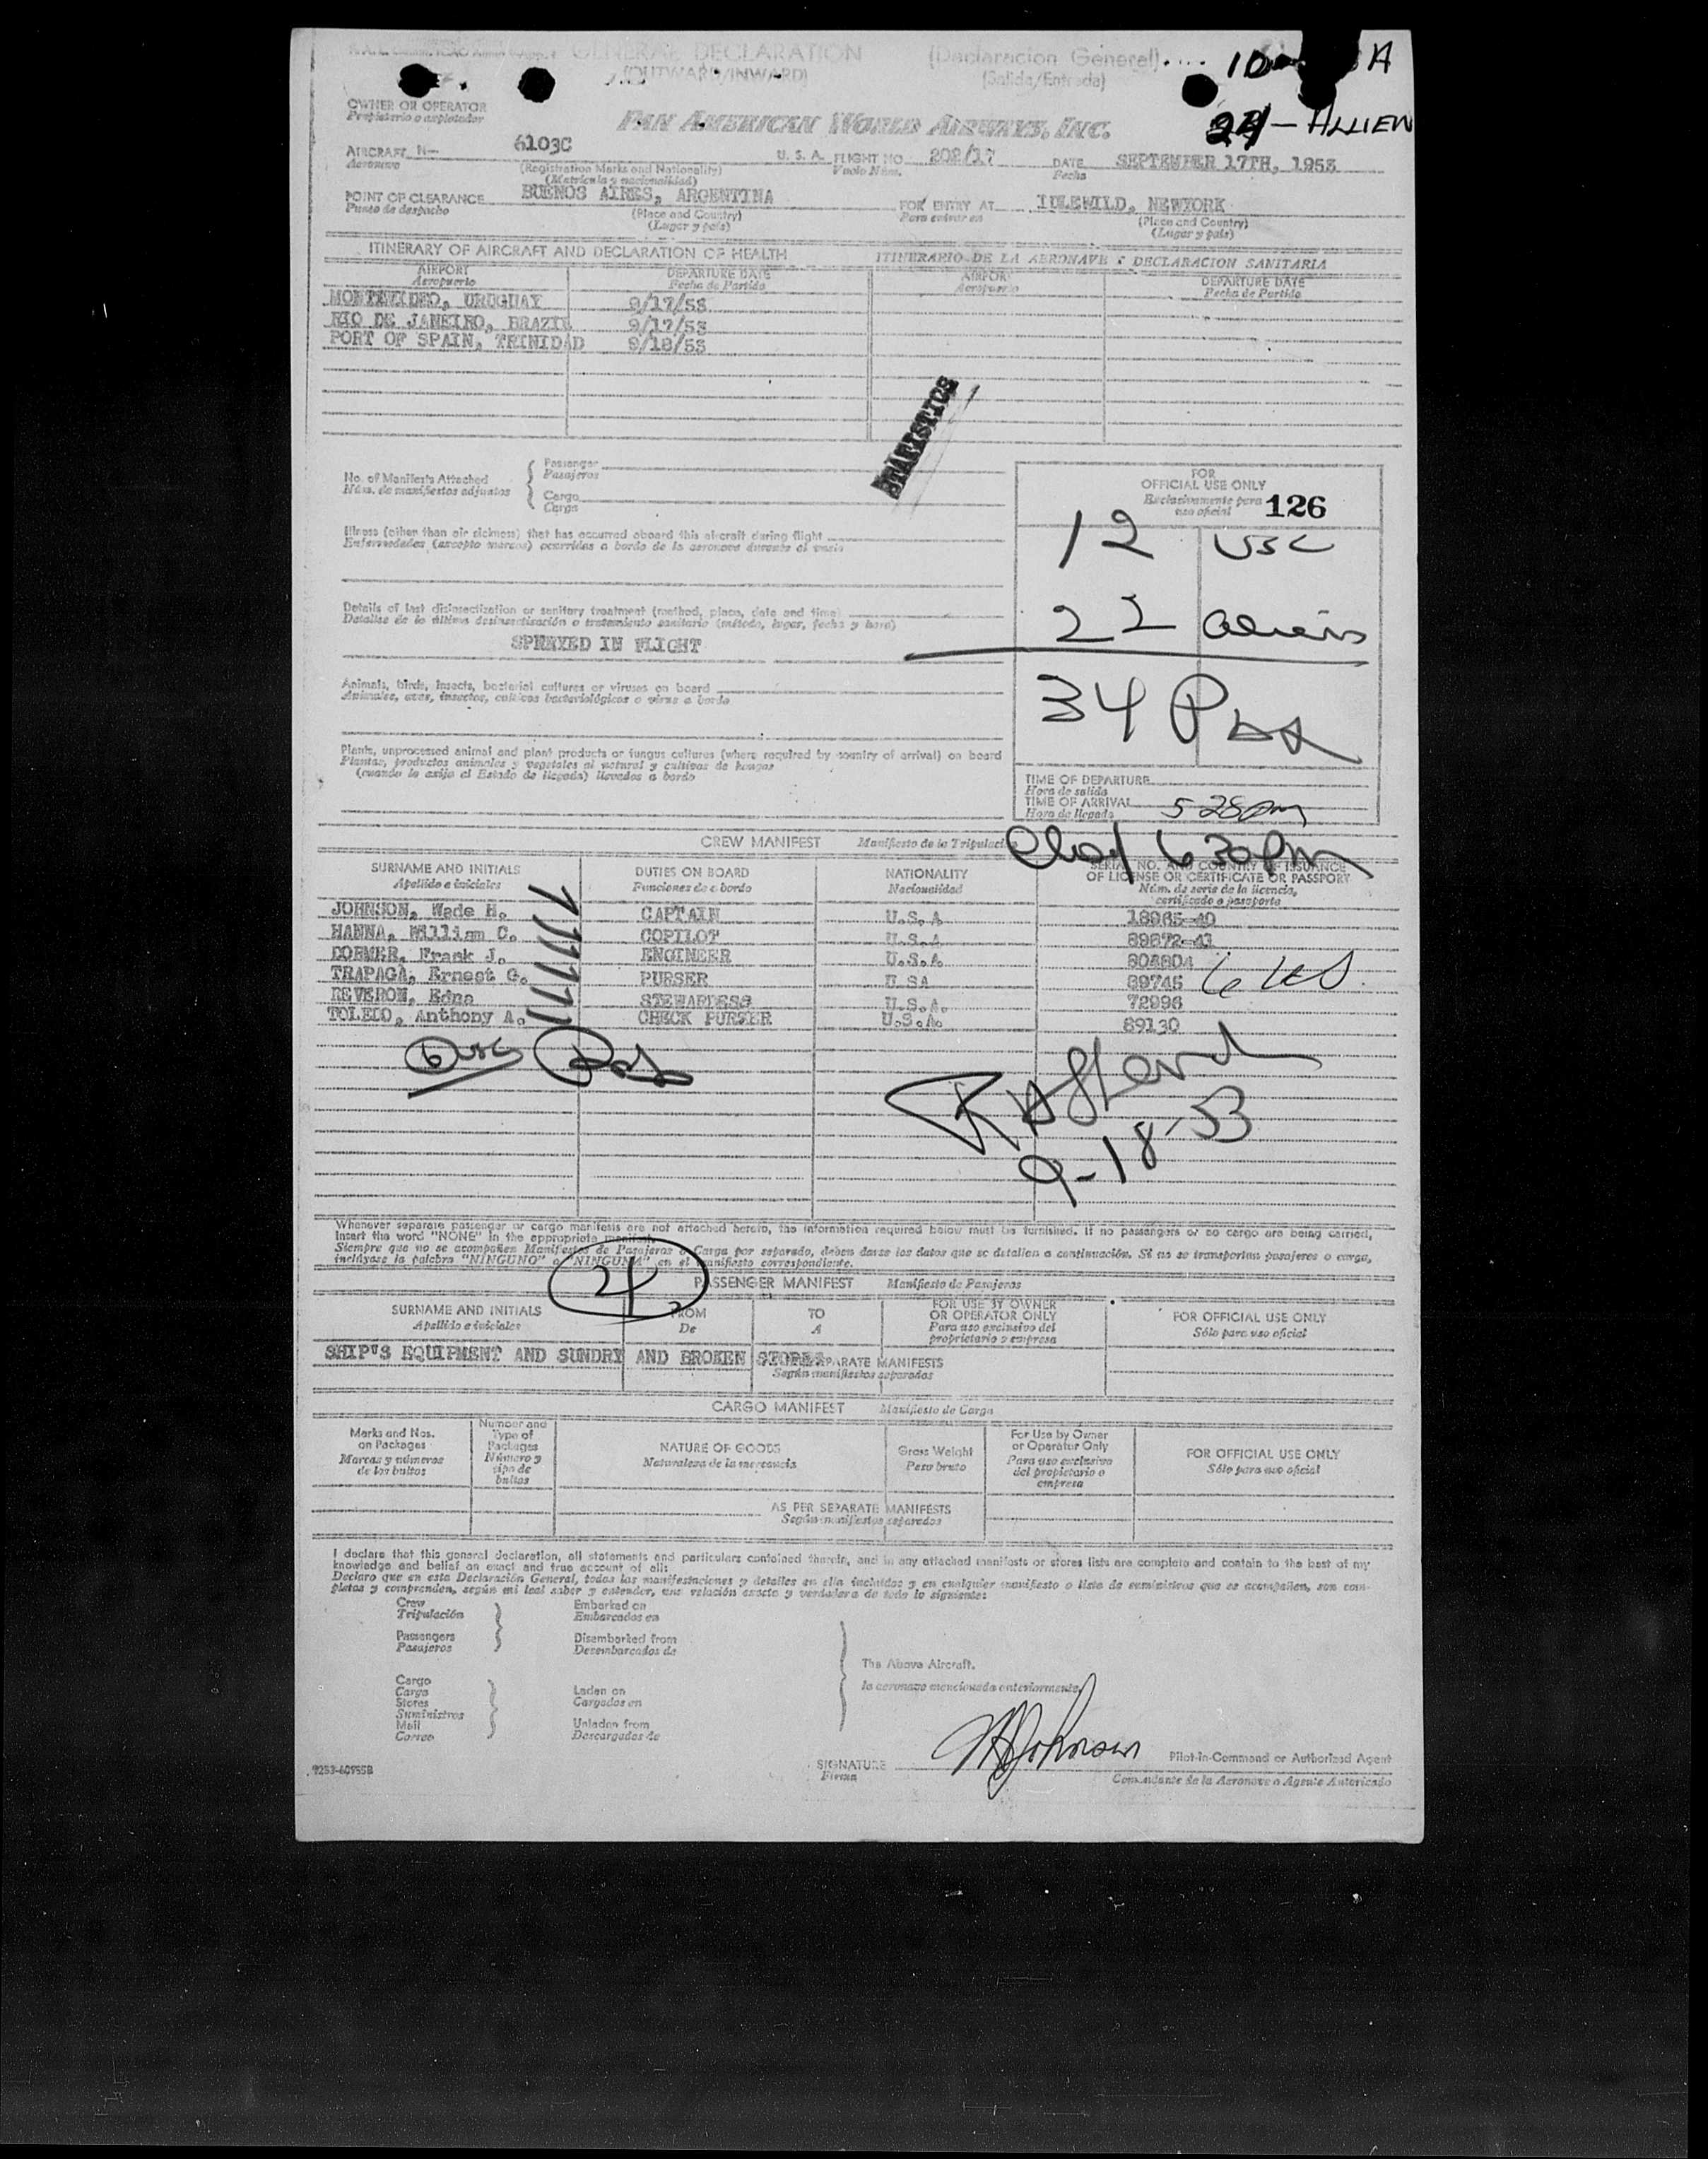 GENERAL DECLARATION (Declaracion General)
(OUTWARD/INWARD) (Salida/Entrada)
10 A
24 - ALLIEN
OWNER OR OPERATOR
Propietario o explotador
PAN AMERICAN WORLD AIRWAYS, INC.
AIRCRAFT N- 6103C U. S. A. FLIGHT NO. 202/17 DATE SEPTEMBER 17TH, 1953
Aeronave (Registration Marks and Nationality) Vuelo Núm. Fecha
(Matrícula y nacionalidad)
POINT OF CLEARANCE BUENOS AIRES, ARGENTINA FOR ENTRY AT IDLEWILD, NEWYORK
Punto de despacho (Place and Country) Para entrar en (Place and Country)
(Lugar y país) (Lugar y país)
ITINERARY OF AIRCRAFT AND DECLARATION OF HEALTH ITINERARIO DE LA AERONAVE Y DECLARACION SANITARIA
AIRPORT DEPARTURE DATE AIRPORT DEPARTURE DATE
Aeropuerto Fecha de Partida Aeropuerto Fecha de Partida
MONTEVIDEO, URUGUAY 9/17/53
RIO DE JANEIRO, BRAZIL 9/17/53
PORT OF SPAIN, TRINIDAD 9/18/53
STATISTICS
No. of Manifests Attached
Núm. de manifiestos adjuntos
Passenger
Pasajeros
Cargo
Carga
FOR
OFFICIAL USE ONLY
Exclusivamente para
uso oficial 126
12 USC
22 aliens
34 Pax
Illness (other than air sickness) that has occurred aboard this aircraft during flight
Enfermedades (excepto mareos) ocurridas a bordo de la aeronave durante el vuelo
Details of last disinsectization or sanitary treatment (method, place, date and time)
Detalles de la última desinsectización o tratamiento sanitario (método, lugar, fecha y hora)
SPRAYED IN FLIGHT
Animals, birds, insects, bacterial cultures or viruses on board
Animales, aves, insectos, cultivos bacteriológicos o virus a bordo
Plants, unprocessed animal and plant products or fungus cultures (where required by country of arrival) on board
Plantas, productos animales y vegetales al natural y cultivos de hongos
(cuando lo exija el Estado de llegada) llevados a bordo
TIME OF DEPARTURE
Hora de salida
TIME OF ARRIVAL 5 28pm
Hora de llegada
630pm
CREW MANIFEST Manifiesto de la Tripulación
SURNAME AND INITIALS DUTIES ON BOARD NATIONALITY SERIAL NO. AND COUNTRY OF ISSUANCE
Apellido e iniciales Funciones de a bordo Nacionalidad OF LICENSE OR CERTIFICATE OR PASSPORT
Núm. de serie de la licencia,
certificado o pasaporte
JOHNSON, Wade H. CAPTAIN U.S.A 18965-40
HANNA, William C. COPILOT U.S.A 89872-41
DORMER, Frank J. ENGINEER U.S.A 804804
TRAPAGA, Ernest G. PURSER U.SA 89745
REVERON, Edna STEWARDESS U.S.A. 72996
TOLEDO, Anthony A. CHECK PURSER U.S.A. 89130
9-18-53
Whenever separate passenger or cargo manifests are not attached hereto, the information required below must be furnished. If no passengers or no cargo are being carried,
insert the word "NONE" in the appropriate manifest.
Siempre que no se acompañen Manifiestos de Pasajeros o Carga por separado, deben darse los datos que se detallan a continuación. Si no se transportan pasajeros o carga,
inclúyase la palabra "NINGUNO" o "NINGUNA" en el manifiesto correspondiente.
24
PASSENGER MANIFEST Manifiesto de Pasajeros
SURNAME AND INITIALS FROM TO FOR USE BY OWNER FOR OFFICIAL USE ONLY
Apellido e iniciales De A OR OPERATOR ONLY Sólo para uso oficial
Para uso exclusivo del
propietario o empresa
SHIP'S EQUIPMENT AND SUNDRY AND BROKEN STORES
SEPARATE MANIFESTS
Según manifiestos separados
CARGO MANIFEST Manifiesto de Carga
Marks and Nos.
on Packages
Marcas y números
de los bultos
Number and
Type of
Packages
Número y
tipo de
bultos
NATURE OF GOODS
Naturaleza de la mercancía
Gross Weight
Peso bruto
For Use by Owner
or Operator Only
Para uso exclusivo
del propietario o
empresa
FOR OFFICIAL USE ONLY
Sólo para uso oficial
AS PER SEPARATE MANIFESTS
Según manifiestos separados
I declare that this general declaration, all statements and particulars contained therein, and in any attached manifests or stores lists are complete and contain to the best of my
knowledge and belief an exact and true account of all:
Declaro que en esta Declaración General, todas las manifestaciones y detalles en ella incluidos y en cualquier manifiesto o lista de suministros que se acompañen, son com-
pletos y comprenden, según mi leal saber y entender, una relación exacta y verdadera de todo lo siguiente:
Crew
Tripulación
Passengers
Pasajeros
Embarked on
Embarcados en
Disembarked from
Desembarcados de
Cargo
Carga
Stores
Suministros
Mail
Correo
Laden on
Cargados en
Unladen from
Descargados de
The Above Aircraft.
la aeronave mencionada anteriormente
SIGNATURE WHJohnson Pilot-in-Command or Authorized Agent
Firma Comandante de la Aeronave o Agente Autorizado